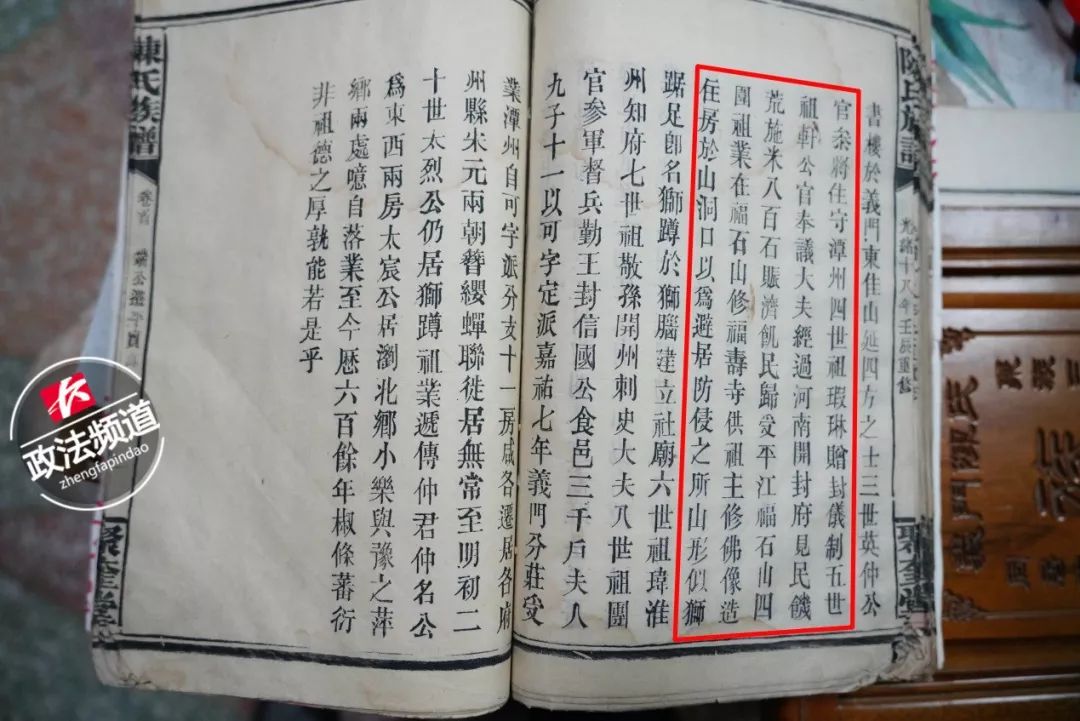 書樓於義門東佳山延四方之士三世英仲公
官叅將住守潭州四世祖瑕琳贈封儀制五世
祖軒公官奉議大夫經過河南開封府見民饑
荒施米八百石賑濟飢民歸受平江福石山四
圍祖業在福石山修福壽寺供祖主修佛像造
住房於山洞口以爲避居防侵之所山形似獅
踞足卽名獅蹲於獅腦建立社廟六世祖瑋淮
州知府七世祖敬孫開州刺史大夫八世祖團
官參軍督兵勤王封信國公食邑三千戶夫人
九子十一以可字定派嘉祐七年義門分莊受
業潭州自可字派分支十一房咸各遷居各府
州縣朱元兩朝簪纓蟬聯徙居無常至明初二
十世太烈公仍居獅蹲祖業遞傳仲君仲名公
爲東西兩房太宸公居瀏北鄉小樂與豫之萍
鄉兩處噫自落業至今歷六百餘年椒條蕃衍
非祖德之厚孰能若是乎
陳氏族譜
光緒十八年壬辰重修
聚奎堂
陳氏族譜
卷首
聚奎堂
政法频道
zhengfapindao